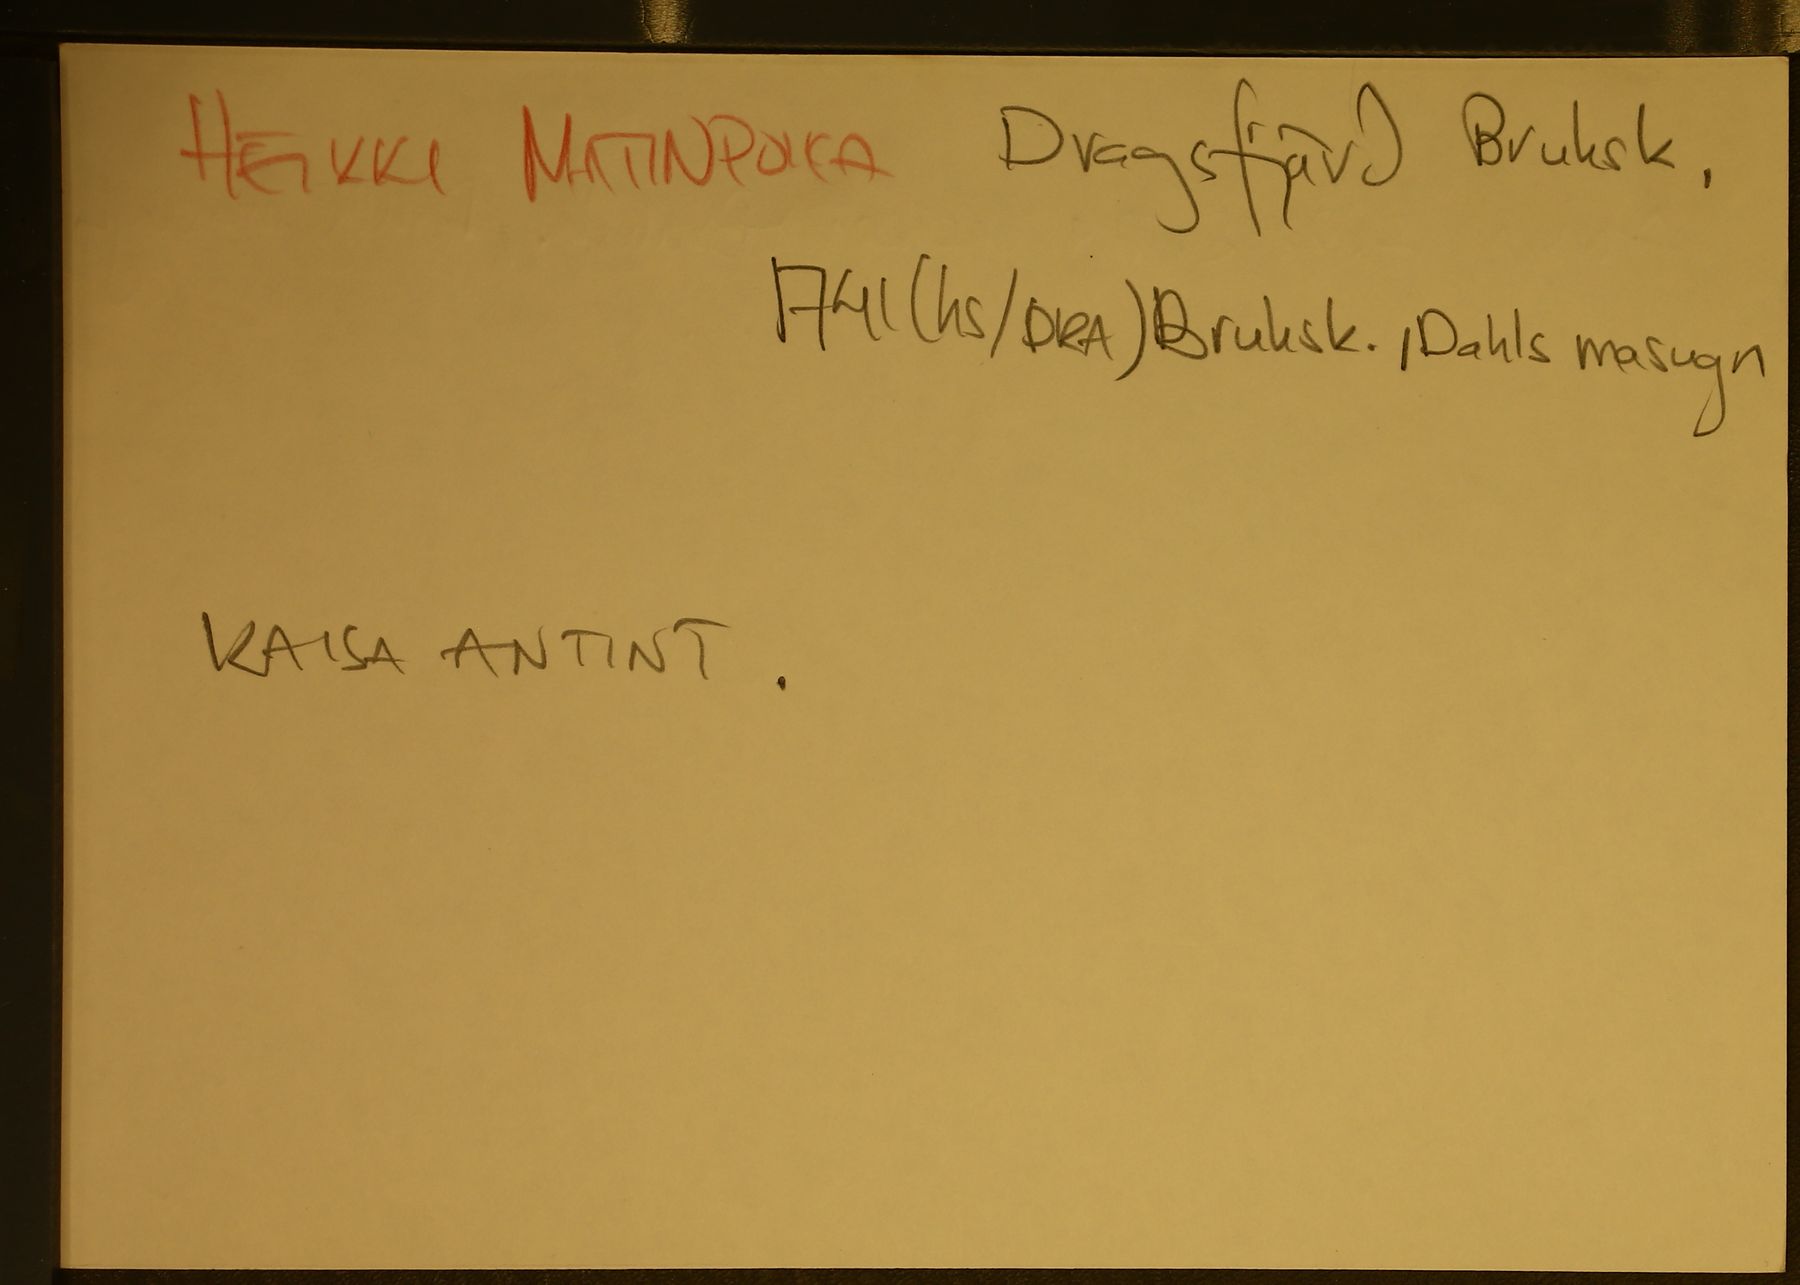 HEIKKI MATINPOIKA Dragsfjärd Bruksk.
1741 (hs/DRA) Bruksk., Dahls masugn
KAISA ANTINT.